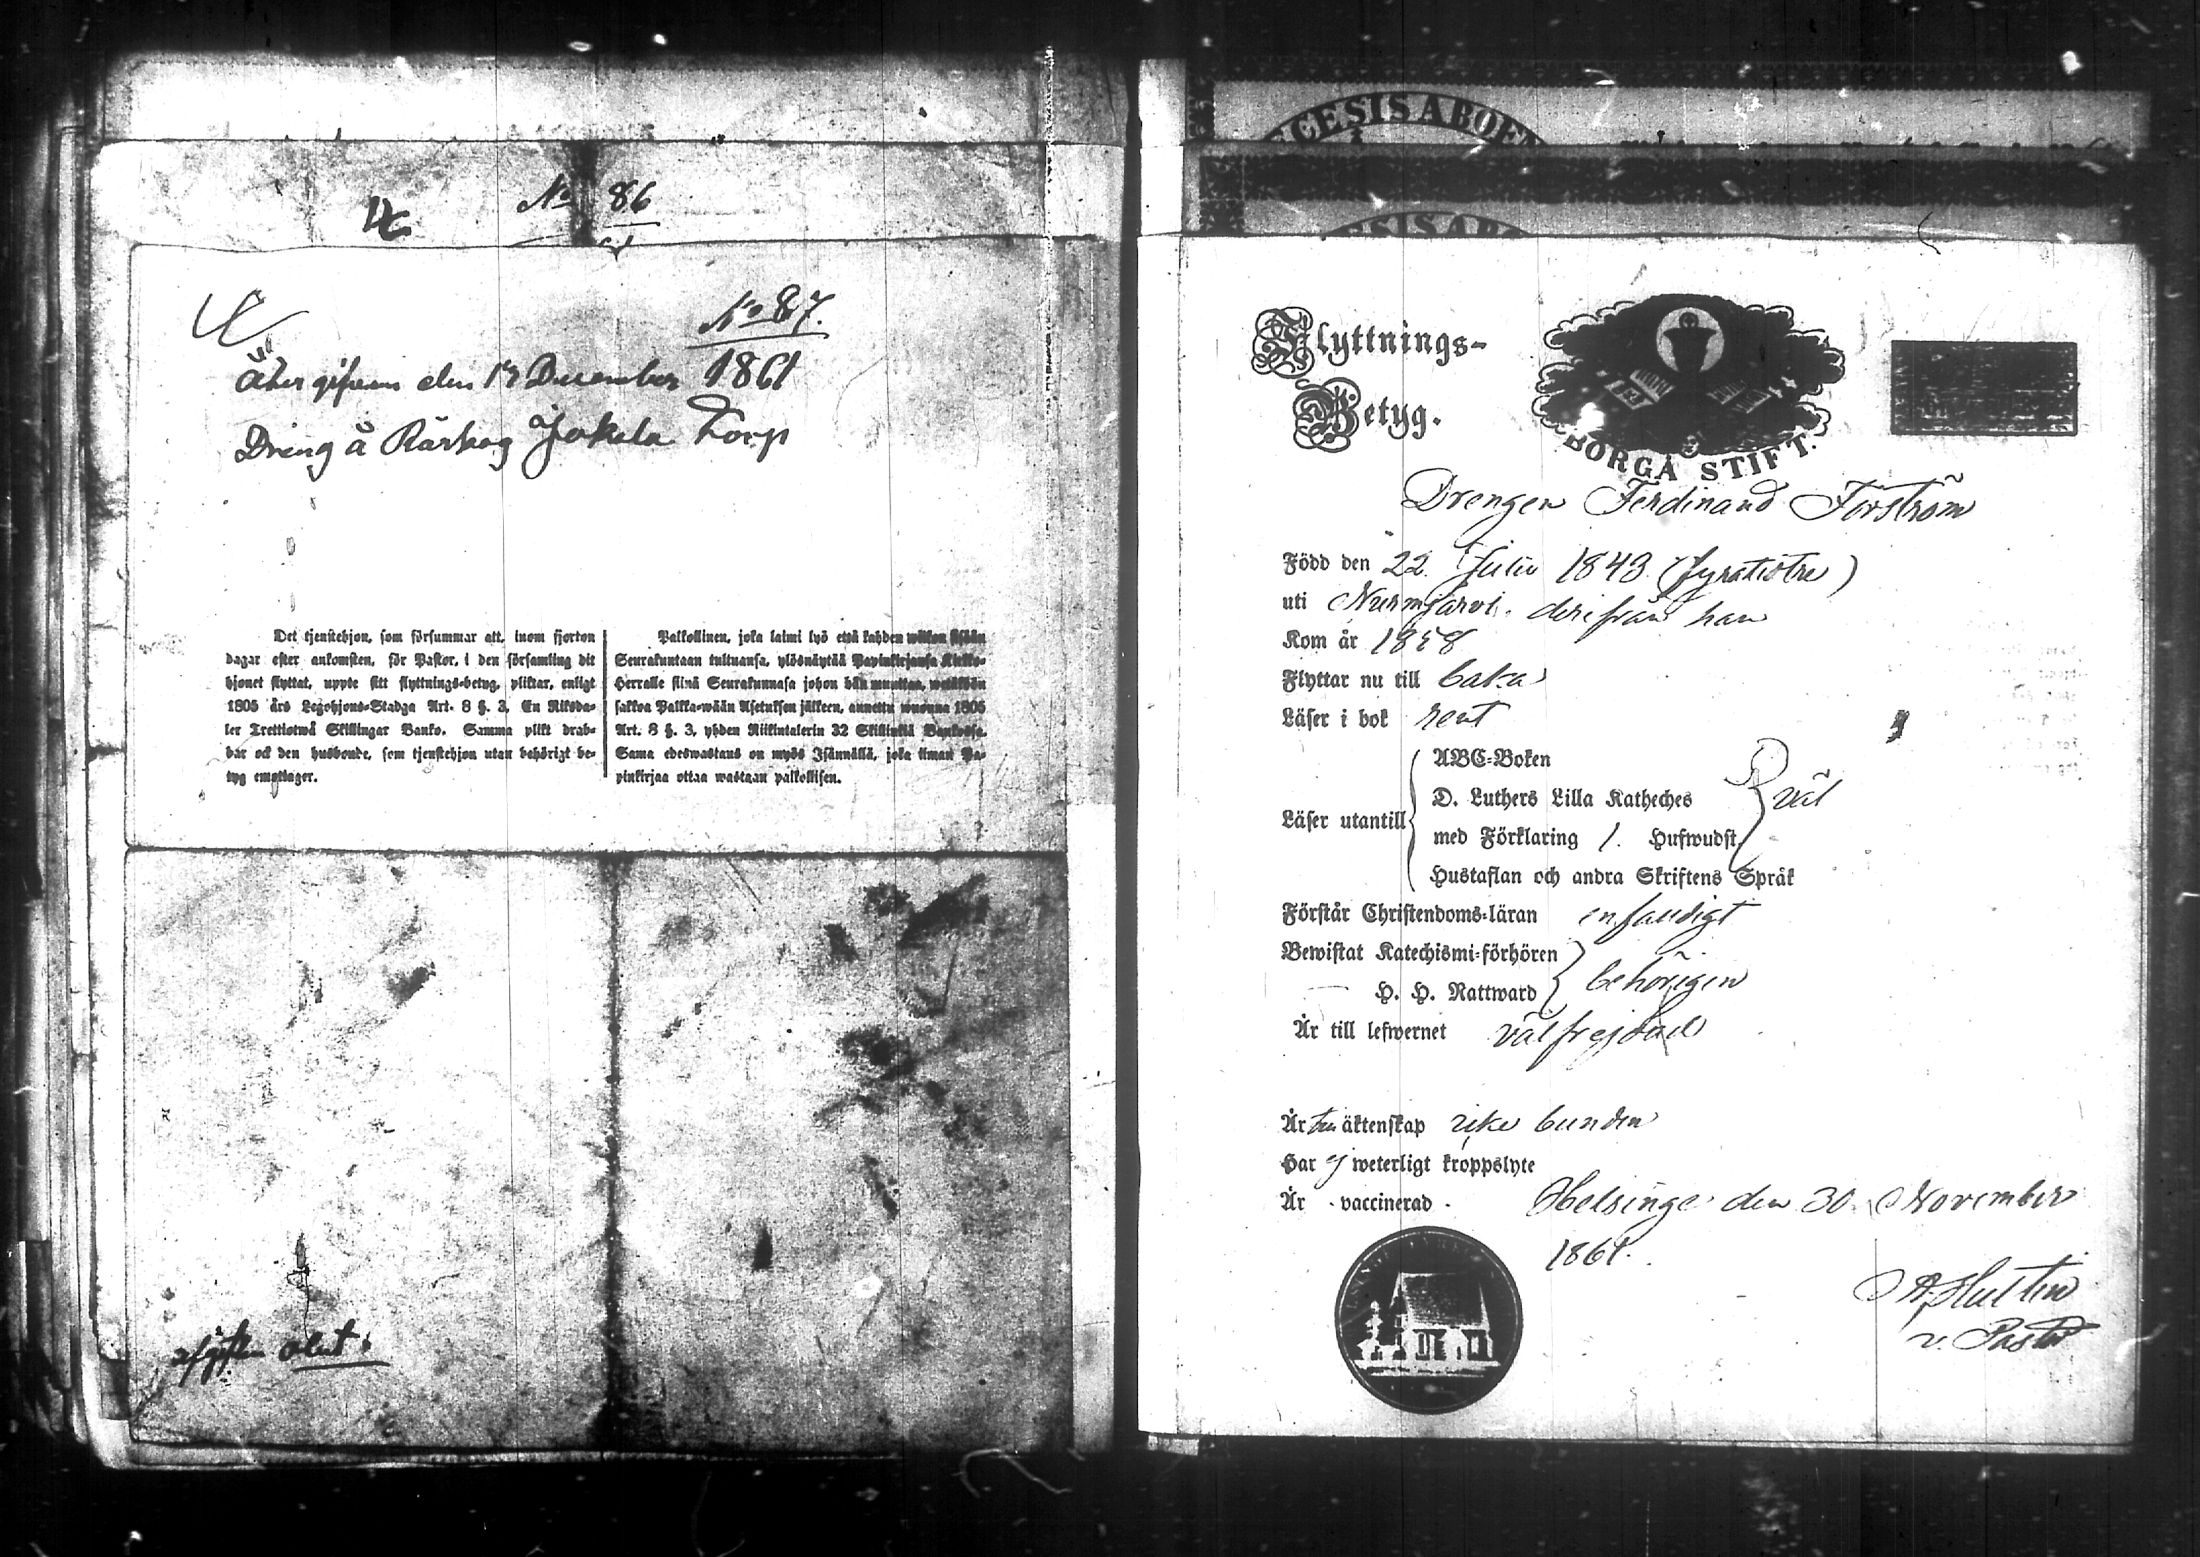 No 86
No 87.
Återgifven den 17 December 1861
Dreng å Råskog Jokela Torp
Det tjenstehjon, som försummar att, inom fjorton
dagar efter ankomsten, för Pastor, i den församling dit
hjonet flyttat, uppte sitt flyttnings-betyg, pliktar, enligt
1805 års Legohjons-Stadga Art. 8 §. 3, En Riksda-
ler Trettiotwå Skillingar Banko. Samma plikt drab-
bar ock den husbonde, som tjenstehjon utan behörigt be-
tyg emottager.
Palkollinen, joka laimi lyö että kahden wiikon sisään
Seurakuntaan tultuansa, ylösnäytää Papinkirjansa Kirkko-
Herralle siinä Seurakunnasa johon hän muuttaa, wetäköön
sakkoa Palkka-wään Asetuksen jälkeen, annettu wuonna 1805
Art. 8 §. 3, yhden Riikintalerin 32 Skillinkiä Bankossa.
Sama edeswastaus on myös Isännällä, joka ilman Pa-
pinkirjaa ottaa wastaan palkollisen.
CESIS ABOEN
ESIS ABO
Flyttnings-
Betyg.
BORGÅ STIFT.
Drengen Ferdinand Forström
Född den 22. Julii 1843. (fyratiotre)
uti Nurmijärvi. derifrån han
Kom år 1858
Flyttar nu till baka
Läser i bok rent
ABC-Boken
D. Luthers Lilla Katheches
Läser utantill väl
med Förklaring 1. Hufwudst.
Hustaflan och andra Skriftens Språk
Förstår Christendoms-läran enfaldigt
Bewistat Katechismi-förhören
H. H. Nattward behörigen
Är till lefwernet välfrejdad
Är till äktenskap icke bunden
Har ej weterligt kroppslyte
Är vaccinerad.
Helsinge den 30 November
1861.
A. Hultin
v. Pastor